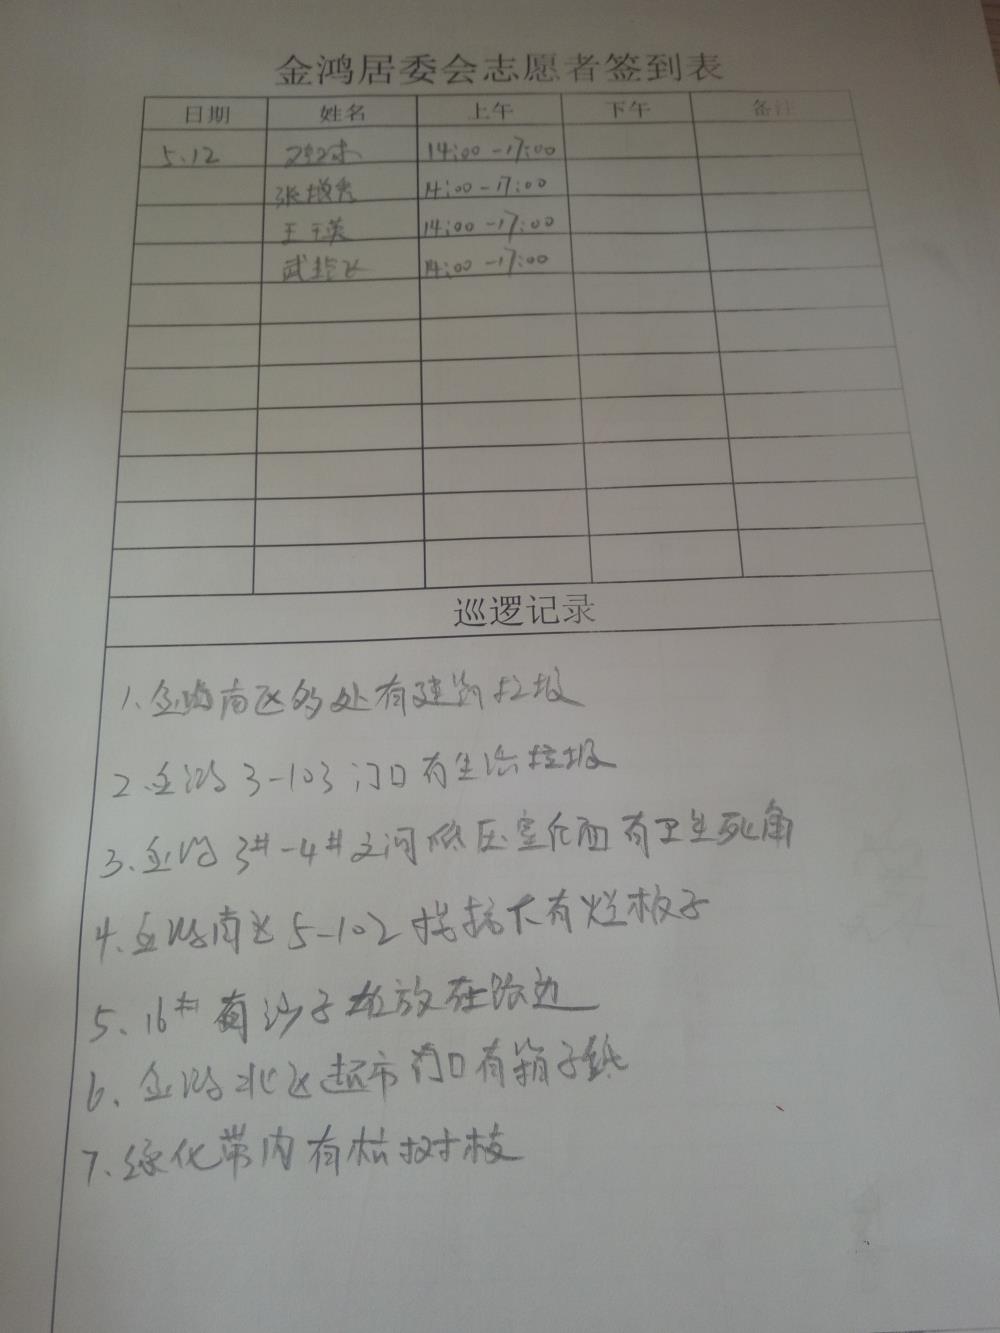 金鸿居委会志愿者签到表
日期 姓名 上午 下午 备注
5.12 14:00-17:00
张 14:00-17:00
王玉英 14:00-17:00
武 14:00-17:00
巡逻记录
1.金鸿南区多处有建筑垃圾
2.金鸿3-103门口有生活垃圾
3.金鸿3#-4#之间低压室后面有卫生死角
4.金鸿南区5-102楼梯下有烂板子
5.16#有沙子堆放在路边
6.金鸿北区超市门口有箱子纸
7.绿化带内有枯树枝